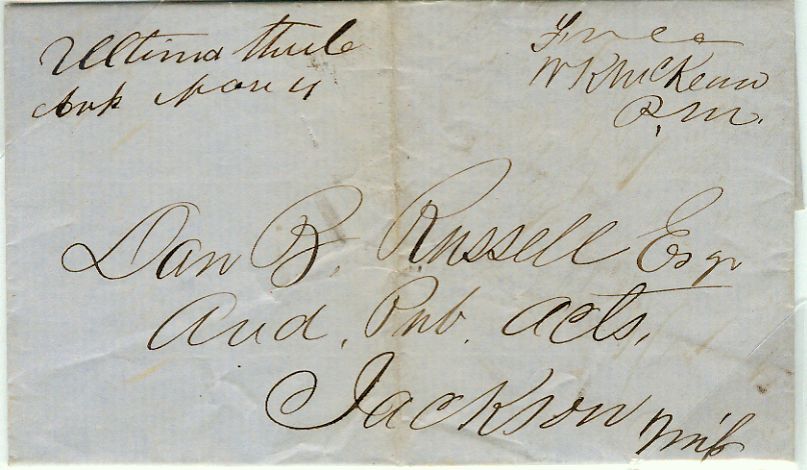 Ultima Thule
Ark Nov 4
Free
W K McKean
P.M.
Dan B. Russell Esqr
Aud. Pub. Acts,
Jackson
Miſs